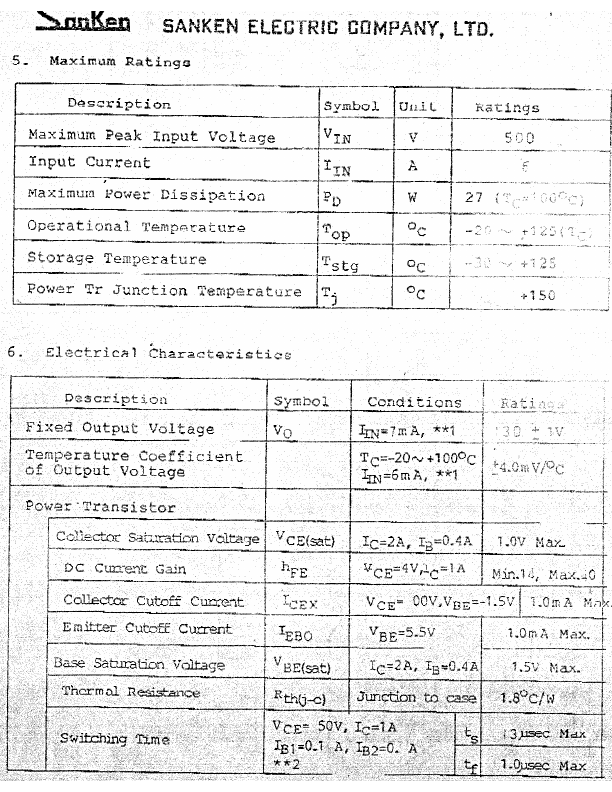 SanKen SANKEN ELECTRIC COMPANY, LTD.
5. Maximum Ratings
Description Symbol Unit Ratings
Maximum Peak Input Voltage VIN V 500
Input Current IIN A
Maximum Power Dissipation PD W 27 (TC=100°C)
Operational Temperature Top °C -20 ~ +125(TC)
Storage Temperature Tstg °C -30 ~ +125
Power Tr Junction Temperature Tj °C +150
6. Electrical Characteristics
Description Symbol Conditions Ratings
Fixed Output Voltage VO IIN=7mA, **1 130 ± 1V
Temperature Coefficient TC=-20~+100°C
of Output Voltage IIN=6mA, **1 ±4.0mV/°C
Power Transistor
Collector Saturation Voltage VCE(sat) IC=2A, IB=0.4A 1.0V Max.
DC Current Gain hFE VCE=4V,IC=1A Min.14, Max.40
Collector Cutoff Current ICEX VCE= 00V,VBE=-1.5V 1.0mA Max
Emitter Cutoff Current IEBO VBE=5.5V 1.0mA Max.
Base Saturation Voltage VBE(sat) IC=2A, IB=0.4A 1.5V Max.
Thermal Resistance Rth(j-c) Junction to case 1.8°C/W
Switching Time VCE= 50V, IC=1A ts 13µsec Max
IB1=0.1 A, IB2=0. A
**2 tf 1.0µsec Max